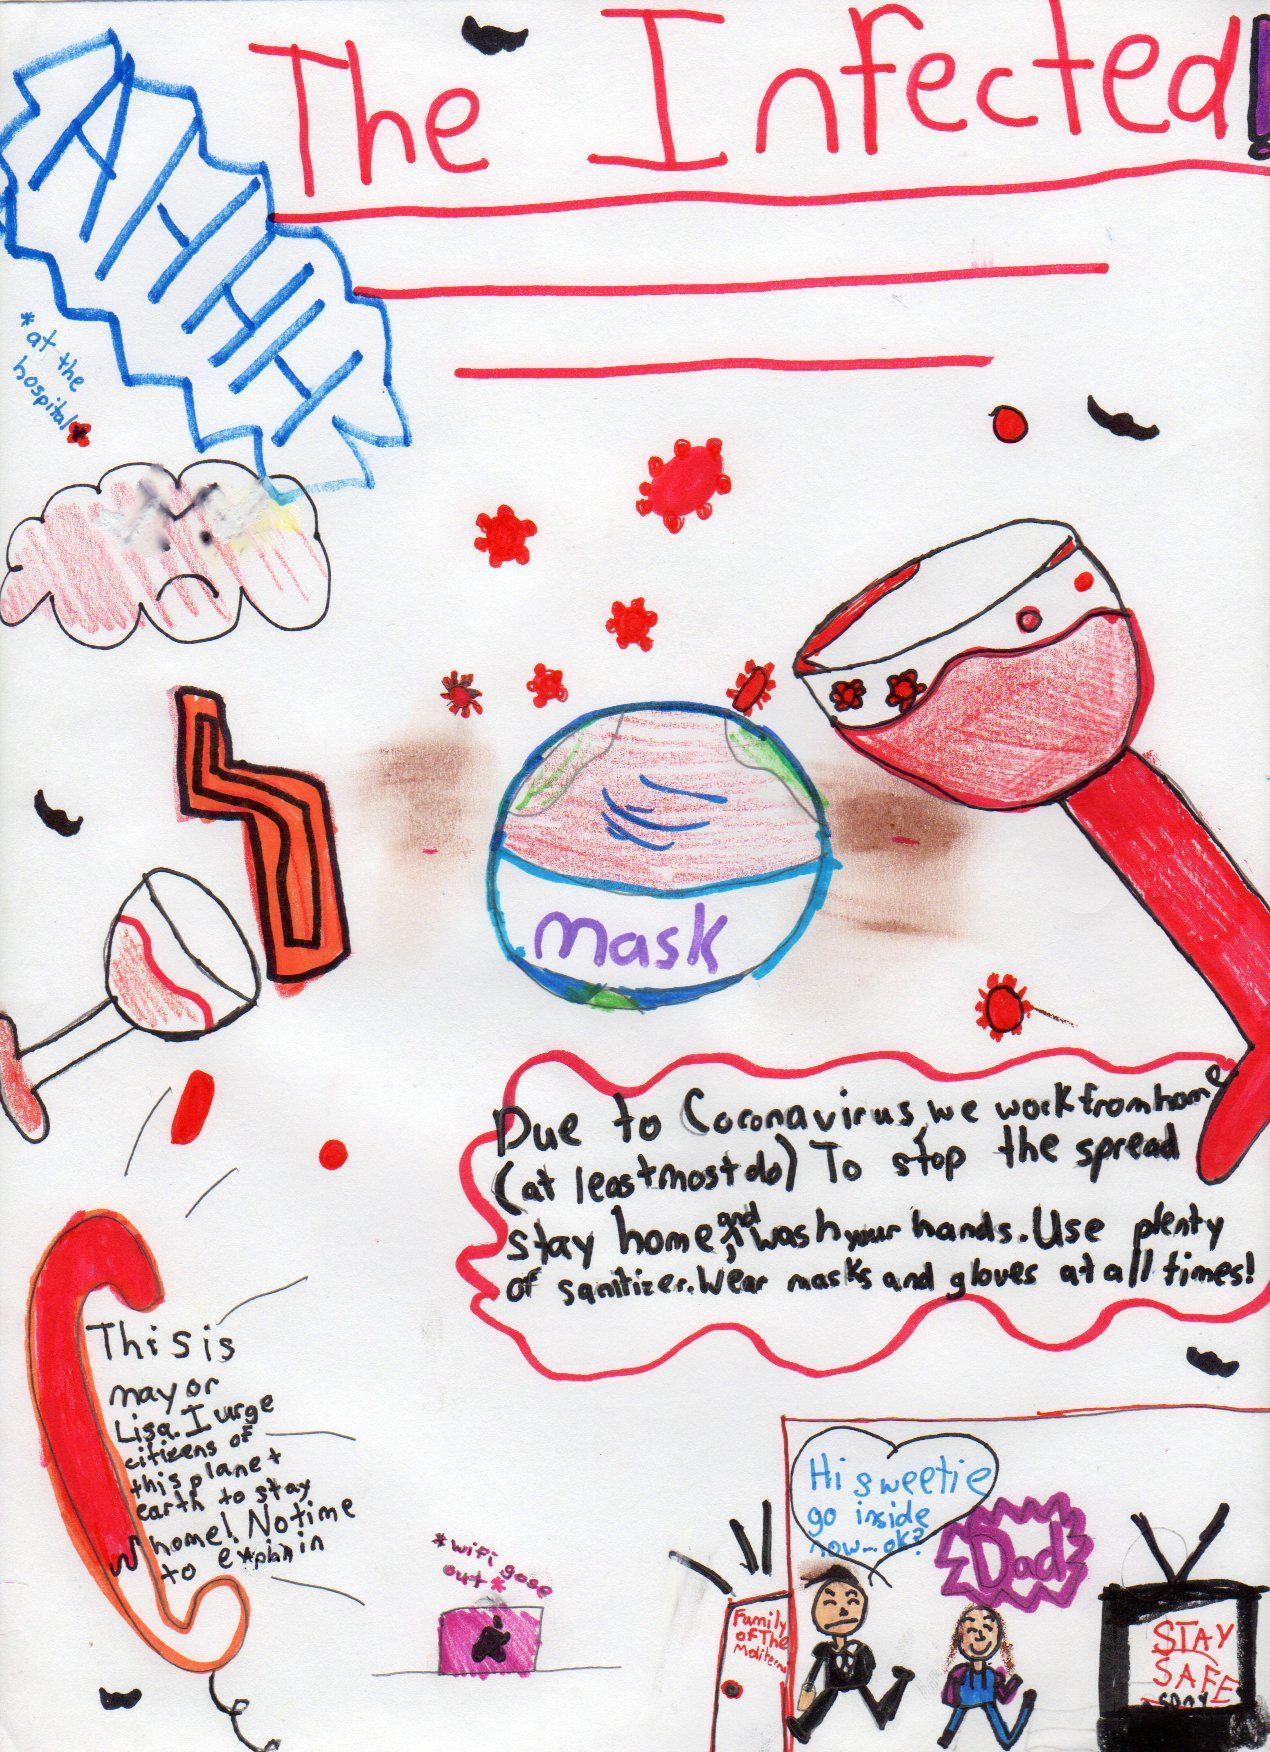 The Infected!
AHHHH
*at the
hospital*
mask
Due to Coronavirus, we work from home
(at least most do) To stop the spread
stay home, and wash your hands. Use plenty
of sanitizer. Wear masks and gloves at all times!
This is
mayor
Lisa. I urge
citizens of
this planet
earth to stay
home! No time
to explain
*wifi gose
out*
Hi sweetie
go inside
now... ok?
Dad
Family
of The
STAY
SAFE
sony